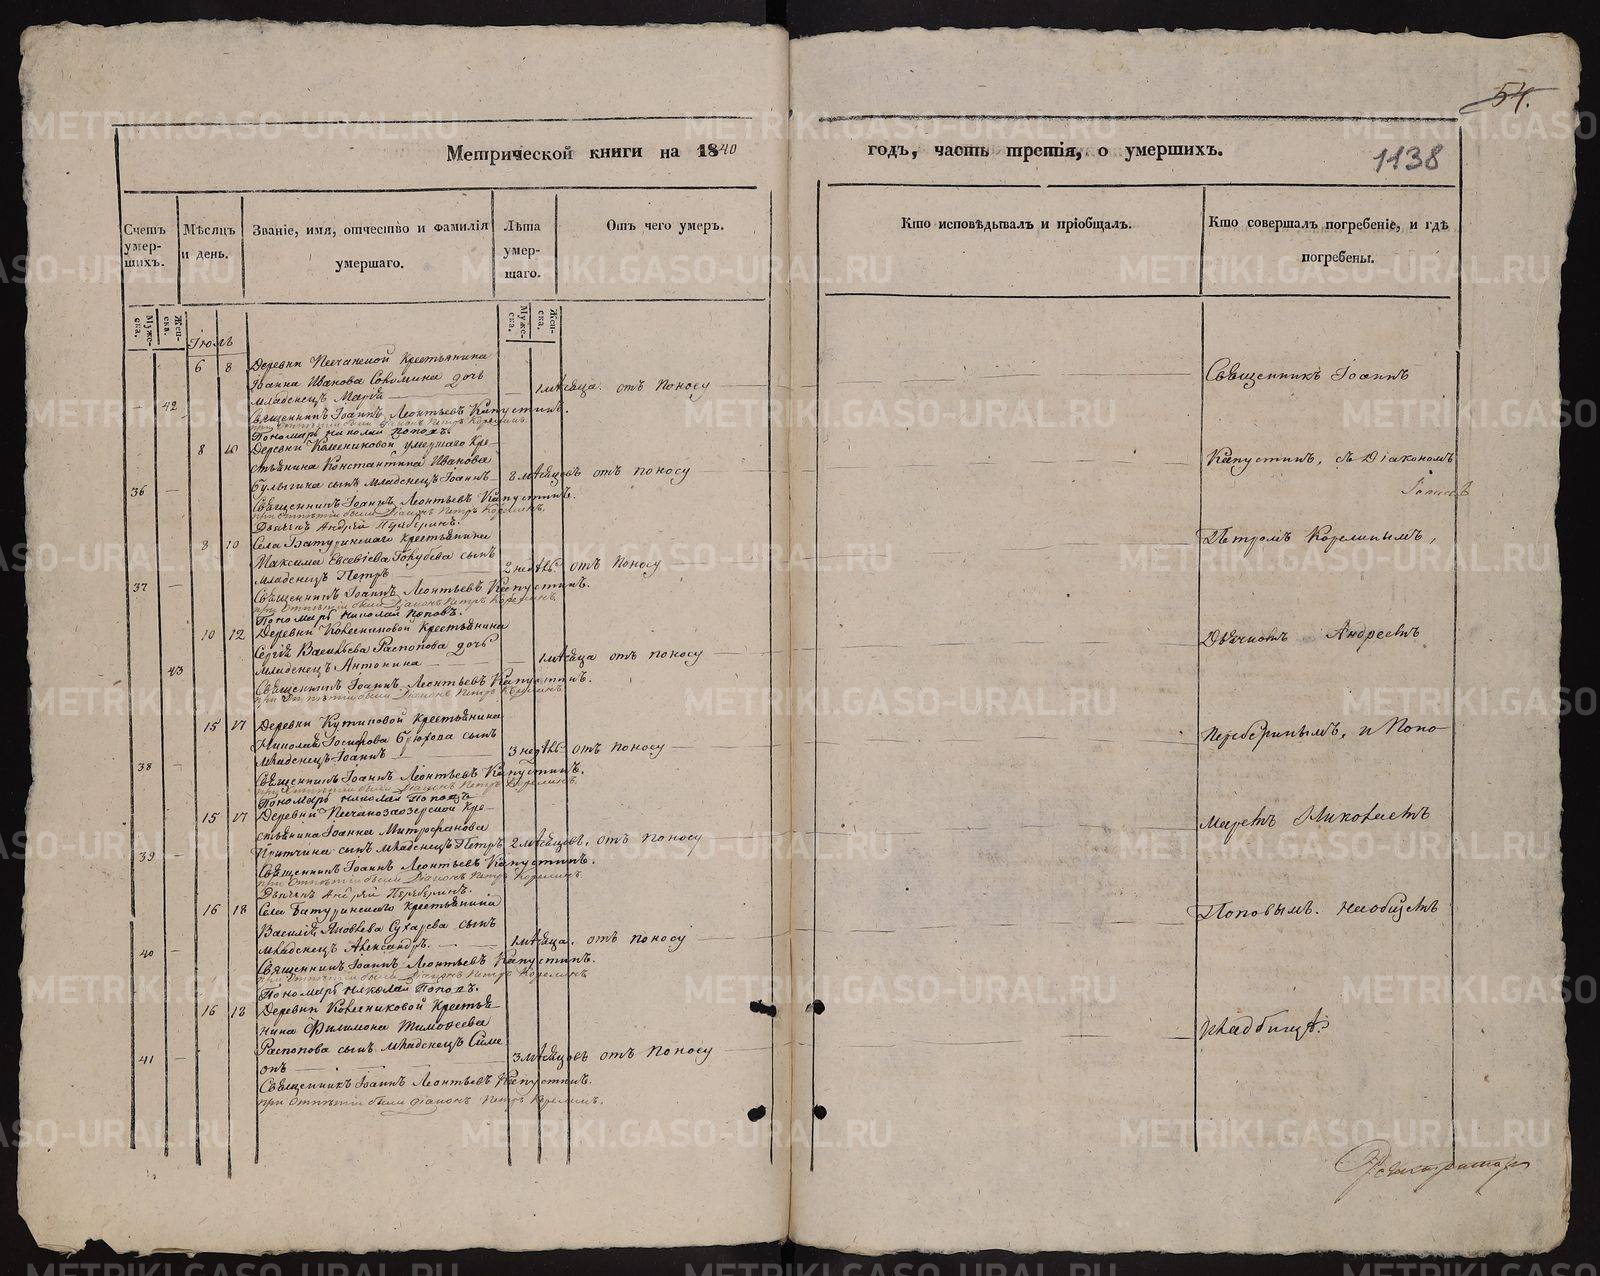 54.
Метрической книги на 1840
годъ, часть третія, о умершихъ.
1138
Счетъ умер-шихъ.
Мѣсяцъ и день.
Званіе, имя, отчество и фамилія умершаго.
Лѣта умер-шаго.
Отъ чего умеръ.
Кто исповѣдывалъ и пріобщалъ.
Кто совершалъ погребеніе, и гдѣ погребены.
Муже-ска.
Жен-ска.
Муже-ска.
Жен-ска.
Іюль
6 8 Деревни Песчанской Крестьянина
Іоанна Иванова дочь
42 младенецъ Марія 1 мѣсяца. отъ поносу
Священникъ Іоаннъ Леонтьевъ Капустинъ.
при отпѣтіи были Діаконъ Петръ Корелинъ.
Пономарь Николай Поповъ.
8 10 Деревни умершаго Кре-
стьянина Константина Иванова
36 Булыгина сынъ младенецъ Іоаннъ мѣсяцовъ отъ поносу
Священникъ Іоаннъ Леонтьевъ Капустинъ.
при отпѣтіи были Діаконъ Петръ Корелинъ,
Дьячекъ Андрей
8 10 Села Батуринскаго крестьянина
Максима Евсевіева Голубева сынъ
37 младенецъ Петръ 2 недѣль отъ поносу
Священникъ Іоаннъ Леонтьевъ Капустинъ.
при отпѣтіи были Діаконъ Петръ Корелинъ,
Пономарь Николай Поповъ.
10 12 Деревни Колесниковой Крестьянина
Сергія Васильева Распопова дочь
43 младенецъ Антонина 1 мѣсяца отъ поносу
Священникъ Іоаннъ Леонтьевъ Капустинъ.
при отпѣтіи были Діаконъ Петръ Корелинъ
15 17 Деревни Крестьянина
Николая Іосифова сынъ
38 младенецъ Іоаннъ 3 недѣль отъ поносу
Священникъ Іоаннъ Леонтьевъ Капустинъ.
при отпѣтіи были Діаконъ Петръ Корелинъ
Пономарь Николай Поповъ
15 17 Деревни Кре-
стьянина Іоанна Митрофанова
39 Притчина сынъ младенецъ Петръ 2 мѣсяцовъ, отъ поносу
Священникъ Іоаннъ Леонтьевъ Капустинъ.
при отпѣтіи были Діаконъ Петръ Корелинъ.
Дьячекъ Андрей
16 18 Села Батуринскаго крестьянина
Василія Яковлева Сухарева сынъ
40 младенецъ Александръ. 1 мѣсяца. отъ поносу
Священникъ Іоаннъ Леонтьевъ Капустинъ.
при отпѣтіи были Діаконъ Петръ Корелинъ
Пономарь Николай Поповъ.
16 18 Деревни Колесниковой Крестья-
нина Филимона Тимоѳеева
41 Распопова сынъ младенецъ Симе-
онъ 3 мѣсяцовъ отъ поносу
Священникъ Іоаннъ Леонтьевъ Капустинъ.
при отпѣтіи были діаконъ Петръ Корелинъ.
Священникъ Іоаннъ
Капустинъ, съ Діакономъ
Петромъ Корелинымъ,
Дьячкомъ Андреемъ
и Поно-
маремъ Николаемъ
Поповымъ. На общемъ
кладбищѣ.